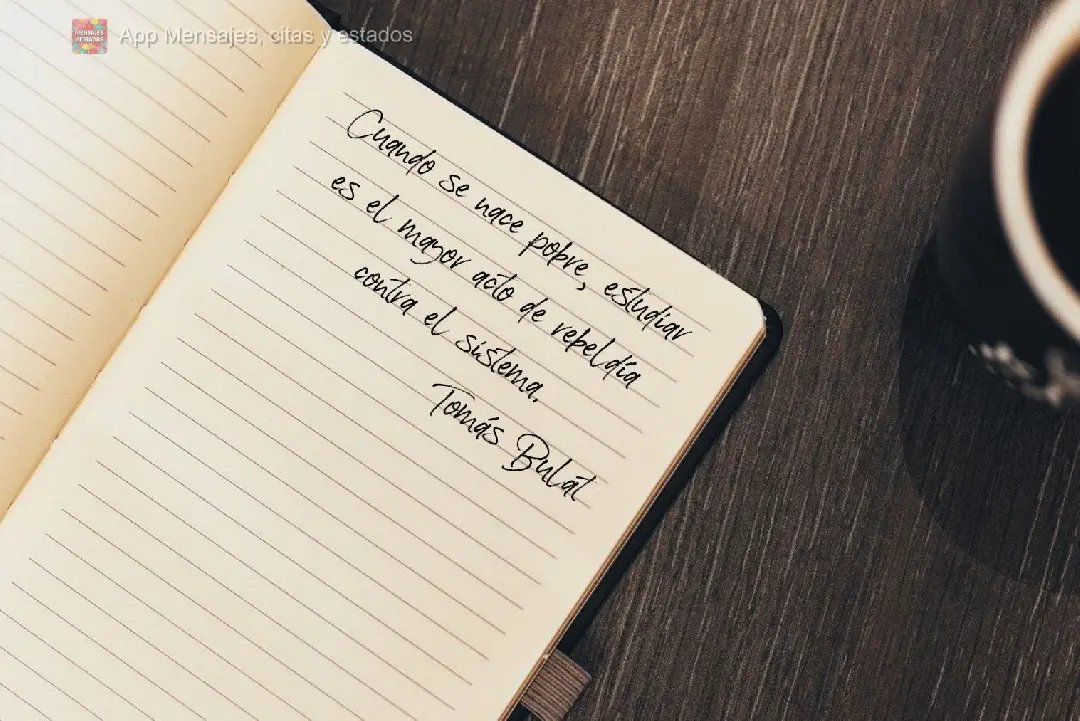 MENSAJES
Y ESTADOS
App Mensajes, citas y estados
Cuando se nace pobre, estudiar
es el mayor acto de rebeldía
contra el sistema.
Tomás Bulat